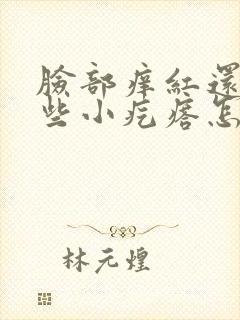 臉部痒紅還
些小疙瘩怎
林元煌